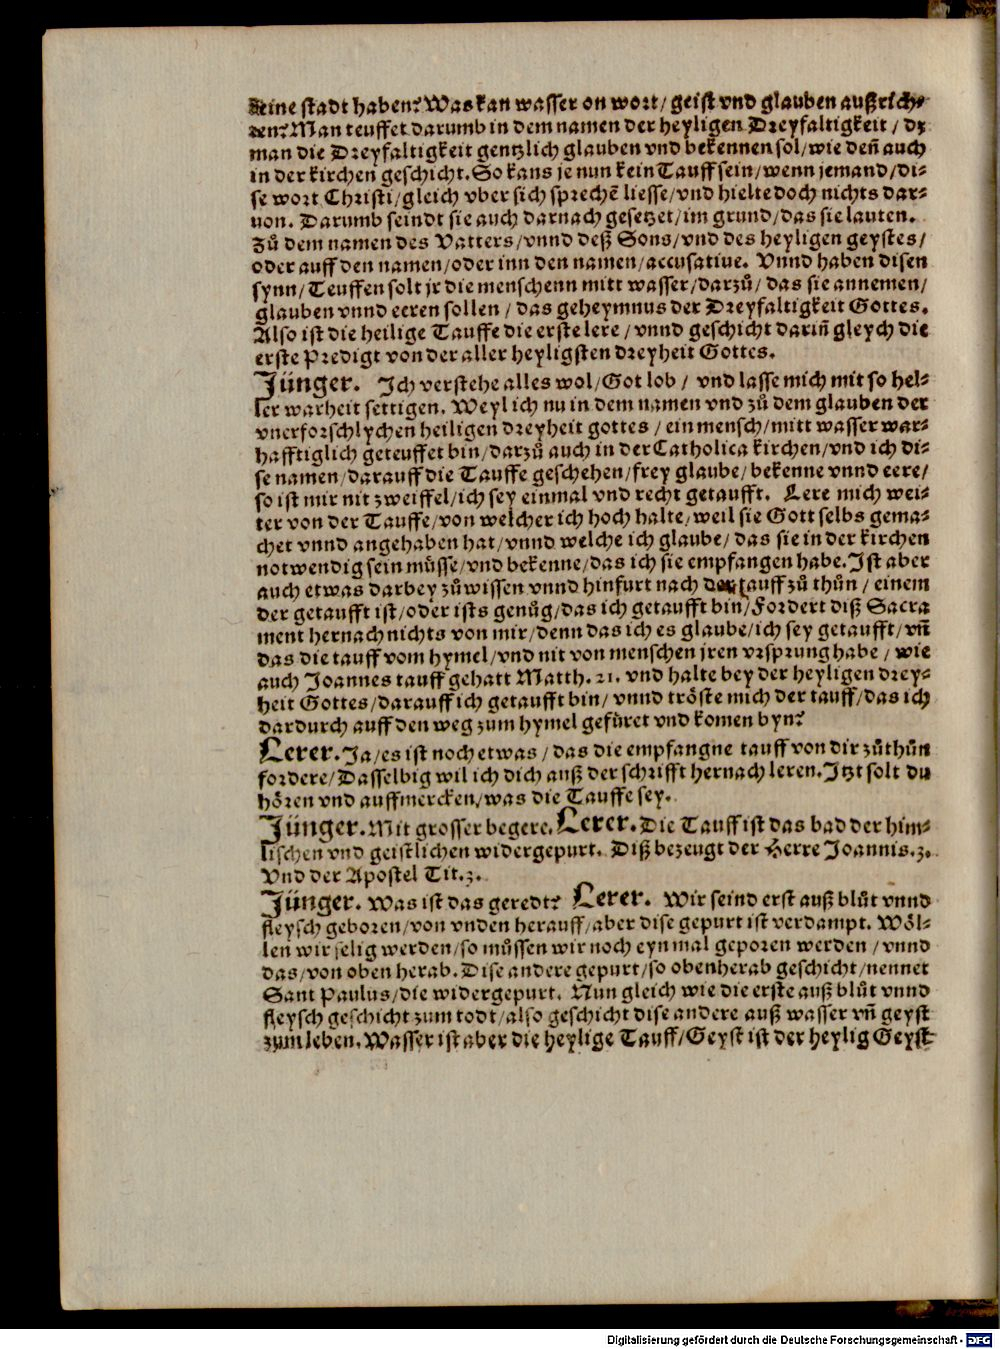 keine stadt haben? Was kan wasser on wort/ geist vnd glauben außrich⸗
ten? Man teuffet darumb in dem namen der heyligen Dreyfaltigkeit / dz
man die Dreyfaltigkeit gentzlich glauben vnd bekennen sol/ wie deñ auch
in der kirchen geschicht. So kans je nun kein Tauff sein/ wenn jemand/ di⸗
se wort Christi/ gleich vber sich sprechẽ liesse/ vnd hielte doch nichts dar⸗
uon. Darumb seindt sie auch darnach gesetzet/ im grund/ das sie lauten.
Zů dem namen des Vatters/ vnnd deß Sons/ vnd des heyligen geystes/
oder auff den namen/ oder inn den namen/ accusatiue. Vnnd haben disen
synn/ Teuffen solt jr die menschenn mitt wasser/ darzů/ das sie annemen/
glauben vnnd eeren sollen / das geheymnus der Dreyfaltigkeit Gottes.
Also ist die heilige Tauffe die erste lere / vnnd geschicht dariñ gleych die
erste Predigt von der aller heyligsten dreyheit Gottes.
Jünger. Ich verstehe alles wol/ Got lob / vnd lasse mich mit so hel⸗
ler warheit settigen. Weyl ich nu in dem namen vnd zů dem glauben der
vnerforschlychen heiligen dreyheit gottes / ein mensch/ mitt wasser war⸗
hafftiglich geteuffet bin/ darzů auch in der Catholica kirchen/ vnd ich di⸗
se namen/ darauff die Tauffe geschehen/ frey glaube/ bekenne vnnd eere/
so ist mir nit zweiffel/ ich sey einmal vnd recht getaufft. Lere mich wei⸗
ter von der Tauffe/ von welcher ich hoch halte/ weil sie Gott selbs gema⸗
chet vnnd angehaben hat/ vnnd welche ich glaube/ das sie in der kirchen
notwendig sein müsse/ vnd bekenne/ das ich sie empfangen habe. Ist aber
auch etwas darbey zůwissen vnnd hinfurt nach der tauff zů thůn / einem
der getaufft ist/ oder ists genůg/ das ich getaufft bin/ Fordert diß Sacra
ment hernach nichts von mir/ denn das ich es glaube/ ich sey getaufft/ vñ
das die tauff vom hymel/ vnd nit von menschen jren vrsprung habe / wie
auch Joannes tauff gehatt Matth. 21. vnd halte bey der heyligen drey⸗
heit Gottes/ darauff ich getaufft bin/ vnnd tröste mich der tauff/ das ich
dardurch auff den weg zum hymel gefüret vnd komen byn?
Lerer. Ja/ es ist noch etwas / das die empfangne tauff von dir zůthůn
fordere/ Dasselbig wil ich dich auß der schrifft hernach leren. Jtzt solt du
hören vnd auffmercken/ was die Tauffe sey.
Jünger. Mit grosser begere. Lerer. Die Tauff ist das bad der him⸗
lischen vnd geistlichen widergepurt. Diß bezeugt der Herre Joannis. 3.
Vnd der Apostel Tit. 3.
Jünger. Was ist das geredt? Lerer. Wir seind erst auß blůt vnnd
fleysch geboren/ von vnden herauff/ aber dise gepurt ist verdampt. Wöl⸗
len wir selig werden/ so müssen wir noch eyn mal geporen werden / vnnd
das/ von oben herab. Dise andere gepurt/ so oben herab geschicht/ nennet
Sant Paulus/ die widergepurt. Nun gleich wie die erste auß blůt vnnd
fleysch geschicht zum todt/ also geschicht dise andere auß wasser vñ geyst
zum leben. Wasser ist aber die heylige Tauff/ Geyst ist der heylig Geyst
Digitalisierung gefördert durch die Deutsche Forschungsgemeinschaft - DFG